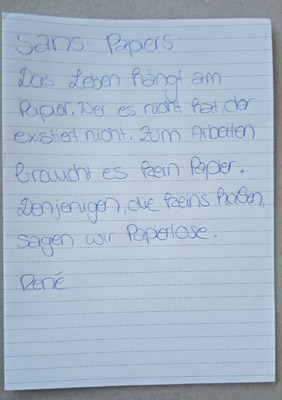 Sans-Papers
Das Leben hängt am
Papier. Wer es nicht hat der
existiert nicht. Zum Arbeiten
braucht es kein Papier.
Denjenigen, die keins haben,
sagen wir Paperlose.
René